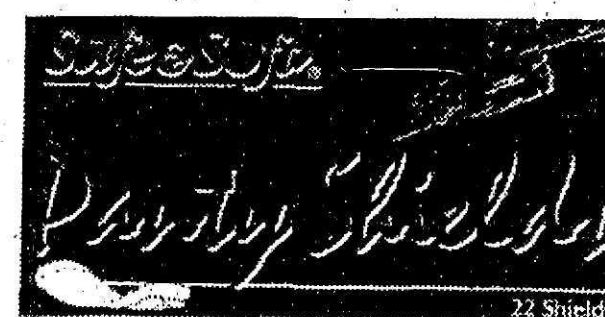 Safe & Soft®
Panty Shields
22 Shield